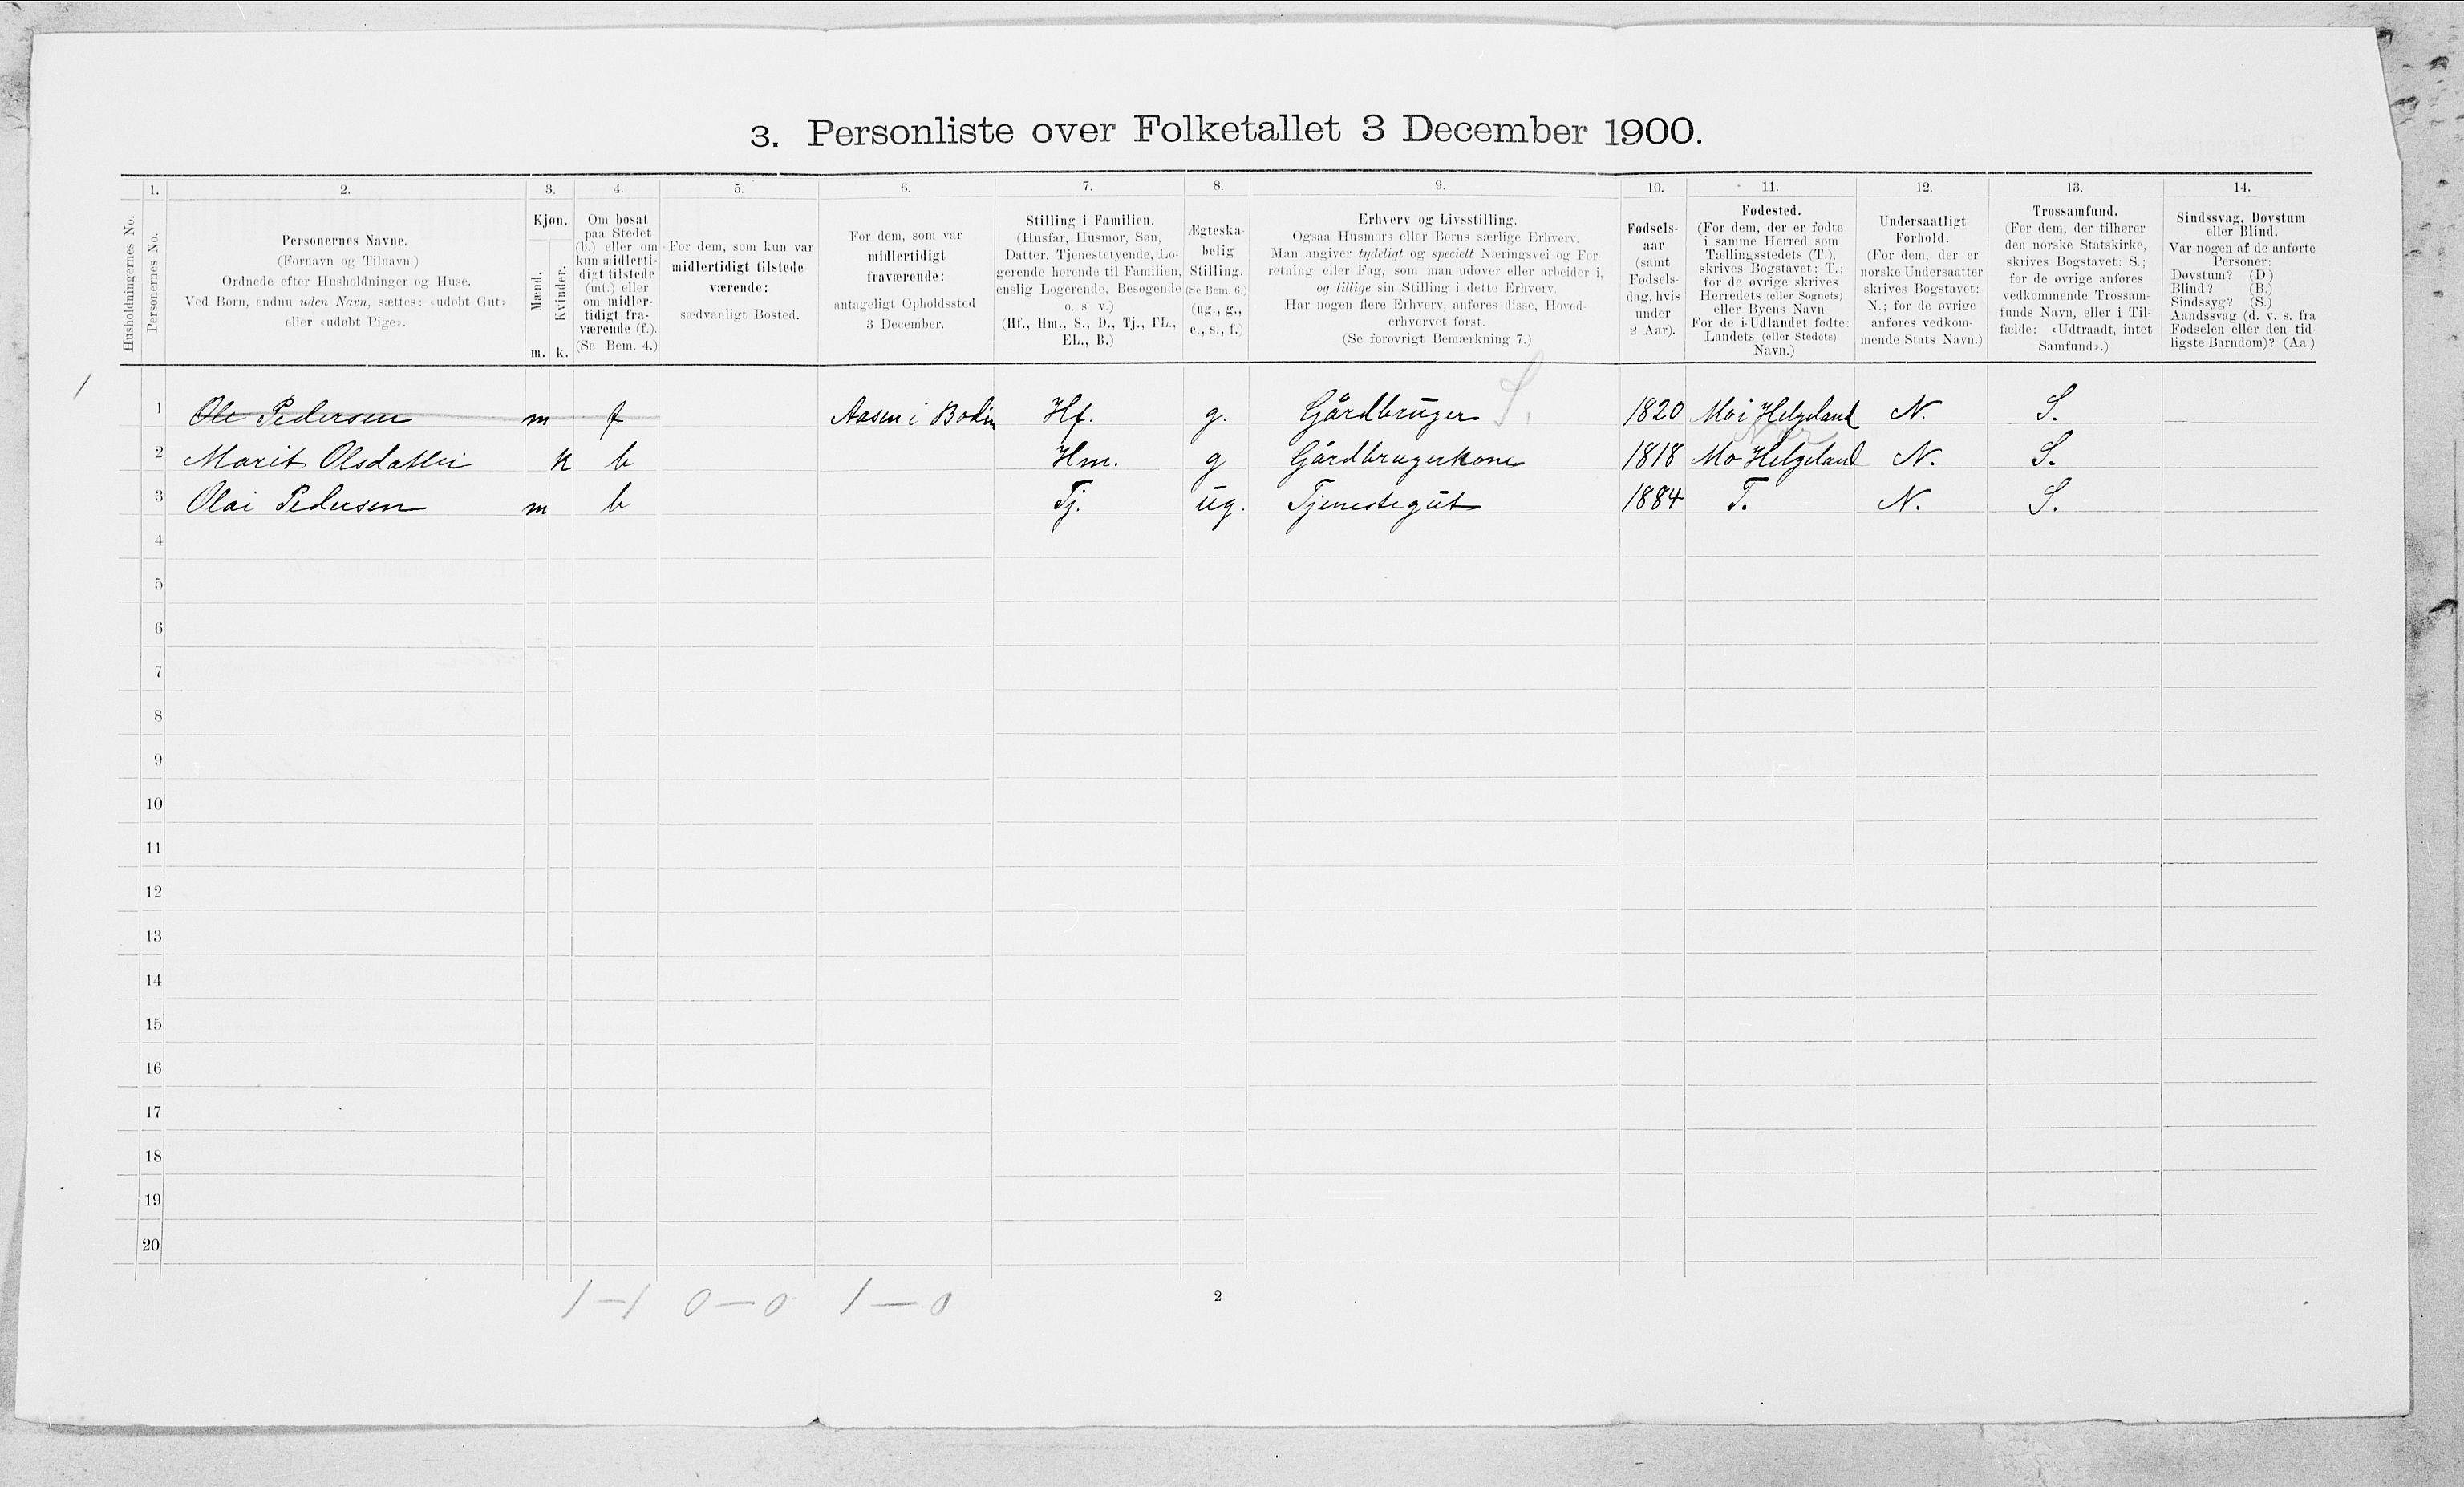 3. Personliste over Folketallet 3 December 1900.
1. 2. 3. 4. 5. 6. 7. 8. 9. 10. 11. 12. 13. 14.
Husholdningernes No.
Personernes No.
Personernes Navne.
(Fornavn og Tilnavn)
Ordnede efter Husholdninger og Huse.
Ved Børn, endnu uden Navn, sættes: «udøbt Gut»
eller «udøbt Pige».
Kjøn.
Mænd.
Kvinder.
m. k.
Om bosat
paa Stedet
(b.) eller om
kun midlerti-
digt tilstede
(mt.) eller
om midler-
tidigt fra-
værende (f.).
(Se Bem. 4.)
For dem, som kun var
midlertidigt tilstede-
værende:
sædvanligt Bosted.
For dem, som var
midlertidigt
fraværende:
antageligt Opholdssted
3 December.
Stilling i Familien.
(Husfar, Husmor, Søn,
Datter, Tjenestetyende, Lo-
gerende hørende til Familien,
enslig Logerende, Besøgende
o. s v.)
(Hf., Hm., S., D., Tj., FL.,
EL., B.)
Ægteska-
belig
Stilling.
(Se Bem. 6.)
(ug., g.,
e., s., f.)
Erhverv og Livsstilling.
Ogsaa Husmors eller Børns særlige Erhverv.
Man angiver tydeligt og specielt Næringsvei og For-
retning eller Fag, som man udøver eller arbeider i,
og tillige sin Stilling i dette Erhverv.
Har nogen flere Erhverv, anføres disse, Hoved-
erhvervet først.
(Se forøvrigt Bemærkning 7.)
Fødsels-
aar
(samt
Fødsels-
dag, hvis
under
2 Aar).
Fødested.
(For dem, der er fødte
i samme Herred som
Tællingsstedets (T.),
skrives Bogstavet: T.;
for de øvrige skrives
Herredets (eller Sognets)
eller Byens Navn
For de i Udlandet fødte:
Landets (eller Stedets)
Navn.)
Undersaatligt
Forhold.
(For dem, der er
norske Undersaatter
skrives Bogstavet:
N.; for de øvrige
anføres vedkom-
mende Stats Navn.)
Trossamfund.
(For dem, der tilhører
den norske Statskirke,
skrives Bogstavet: S.;
for de øvrige anføres
vedkommende Trossam-
funds Navn, eller i Til-
fælde: «Udtraadt, intet
Samfund».)
Sindssvag, Døvstum
eller Blind.
Var nogen af de anførte
Personer:
Døvstum? (D.)
Blind? (B.)
Sindssyg? (S.)
Aandssvag (d. v. s. fra
Fødselen eller den tid-
ligste Barndom)? (Aa.)
1
1 Ole Pedersen m f Aasen i Bodin Hf. g. Gårdbruger S. 1820 Mo i Helgeland N. S.
2 Marit Olsdatter k b Hm. g Gårdbrugerkone 1818 Mo Helgeland N. S.
3 Olai Pedersen m b Tj. ug. Tjenestegut 1884 T. N. S.
4
5
6
7
8
9
10
11
12
13
14
15
16
17
18
19
20
1—1 0—0 1—0
2